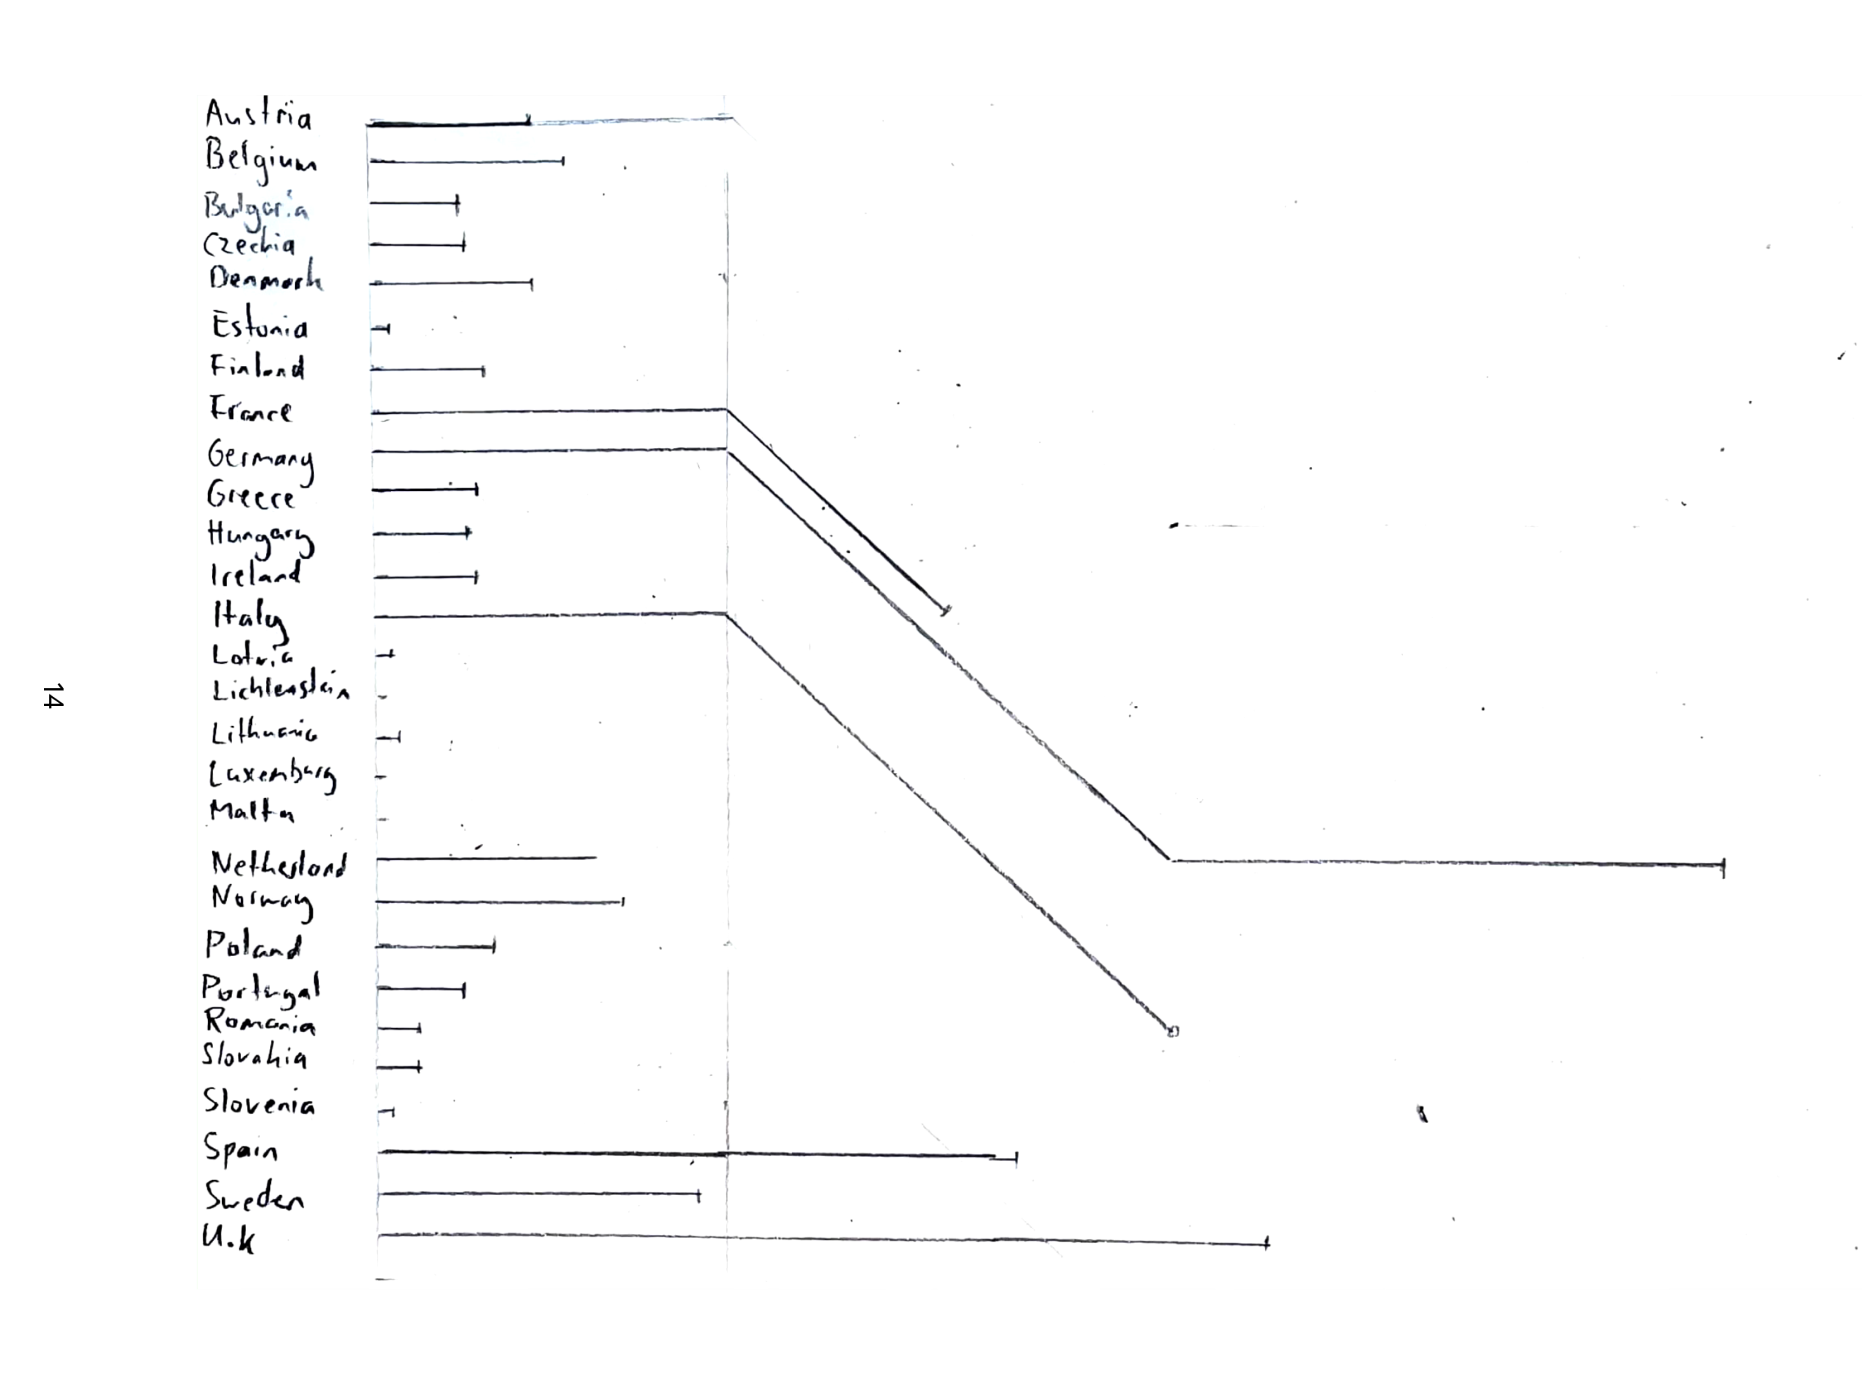 Austria
Belgium
Bulgaria
Czechia
Denmark
Estonia
Finland
France
Germany
Greece
Hungary
Ireland
Italy
Latvia
Lichtenstein
Lithuania
Luxemburg
Malta
Netherland
Norway
Poland
Portugal
Romania
Slovakia
Slovenia
Spain
Sweden
U.K
14